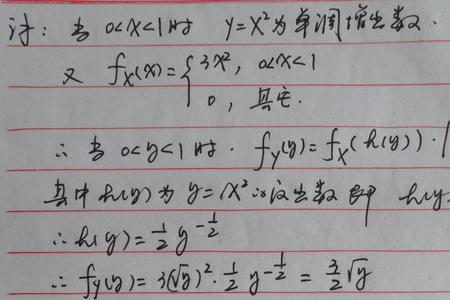 讨: 当 0<x<1时 y=x²为单调增函数.
又 f_X(x)={3x², 0<x<1
0, 其它.
∴ 当 0<y<1 时. f_Y(y)=f_X(h(y))·|
其中 h(y) 为 y=x² 的反函数 即 h(y
∴ h'(y)=½ y^{-½}
∴ f_Y(y)=3(√y)²·½ y^{-½} = 3/2 √y